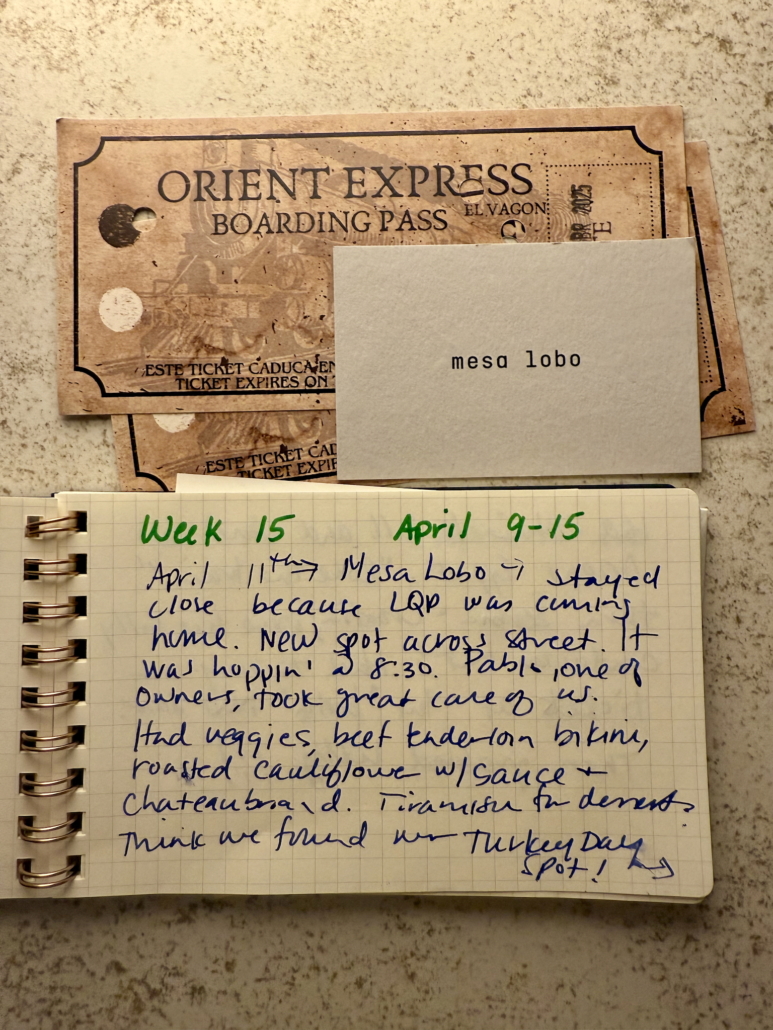 ORIENT EXPRESS
BOARDING PASS
EL VAGON
BR 2025
TE
ESTE TICKET CADUCA EN
TICKET EXPIRES ON
mesa lobo
ESTE TICKET CAD
TICKET EXPIR
Week 15 April 9-15
April 11th → Mesa Lobo → stayed
close because LQP was coming
home. New spot across street. It
was hoppin' @ 8:30. Pablo, one of
owners, took great care of us.
Had veggies, beef tenderloin bikini,
roasted cauliflower w/ sauce +
Chateaubriand. Tiramisu for dessert.
Think we found our Turkey Day
spot! →